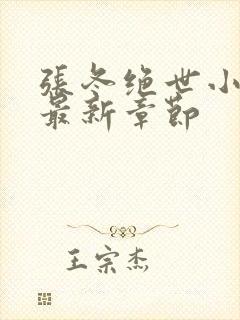 張冬绝世小
最新章節
王宗杰